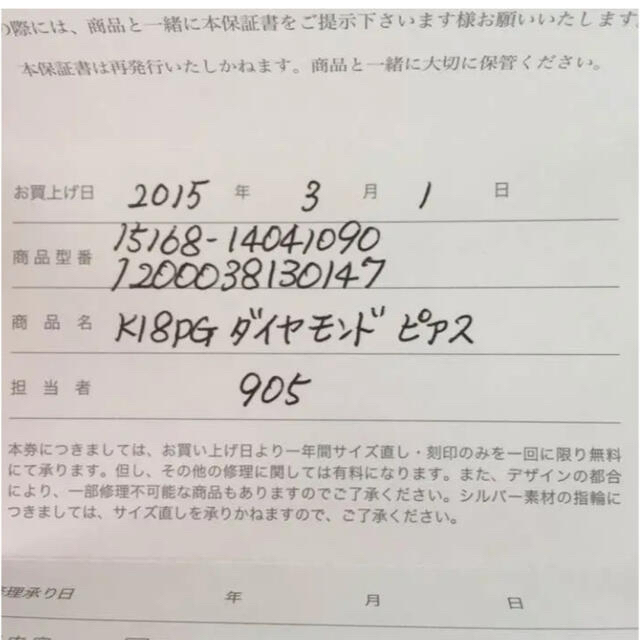 の際には、商品と一緒に本保証書をご提示下さいます様お願いいたします。
本保証書は再発行いたしかねます。商品と一緒に大切に保管ください。
お買上げ日 2015 年 3 月 1 日
商品型番 15168-14041090
1200038130147
商品名 K18PG ダイヤモンド ピアス
担当者 905
本券につきましては、お買い上げ日より一年間サイズ直し・刻印のみを一回に限り無料
にて承ります。但し、その他の修理に関しては有料になります。また、デザインの都合
により、一部修理不可能な商品もありますのでご了承ください。シルバー素材の指輪に
つきましては、サイズ直しを承りかねますので、ご了承ください。
修理承り日 年 月 日